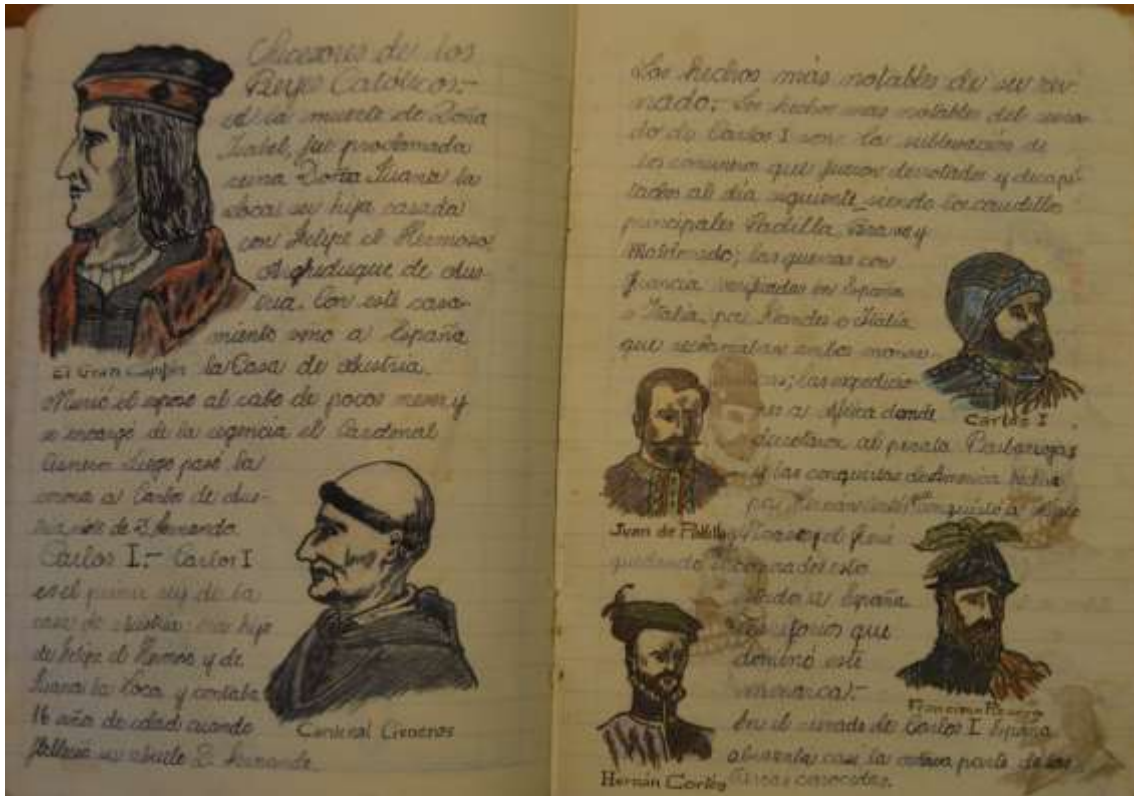 Sucesores de los
Reyes Católicos.-
A la muerte de Doña
Isabel, fue proclamada
reina Doña Juana la
Loca su hija casada
con Felipe el Hermoso
Archiduque de Aus-
tria. Con este casa-
miento vino a España
El Gran Capitán
la Casa de Austria.
Murió el esposo al cabo de pocos meses y
se encargó de la regencia el Cardenal
Cisneros luego pasó la
corona a Carlos de Aus-
tria nieto de D. Fernando.
Carlos I.- Carlos I
es el primer rey de la
casa de Austria; era hijo
de Felipe el Hermoso y de
Juana la Loca y contaba
16 años de edad cuando
falleció su abuelo D. Fernando.
Cardenal Cisneros
Los hechos más notables de su rei-
nado.- Los hechos mas notables del reina-
do de Carlos I son: la sublevación de
los comuneros que fueron derrotados y decapi-
tados al día siguiente, siendo los caudillos
principales Padilla, Bravo y
Maldonado; las guerras con
Francia verificadas en España
e Italia, por Flandes e Italia
que reclamaban ambos monar-
cas; las expedicio-
nes a Africa donde
derrotaron al pirata Barbarroja
y las conquistas de America
por Hernán Cortés conquistó a Méjico
Pizarro el Perú
quedando
España
que
dominó este
monarca.-
En el reinado de Carlos I España
abarcaba casi la octava parte de las
tierras conocidas.
Carlos I
Juan de Padilla
Francisco Pizarro
Hernán Cortés